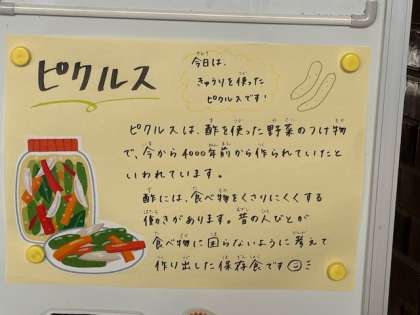 ピクルス
今日は、
きゅうりを使った
ピクルスです!
ピクルスは、酢を使った野菜のつけ物
で、今から4000年前から作られていたと
いわれています。
酢には、食べ物をくさりにくくする
働きがあります。昔の人びとが
食べ物に困らないように考えて
作り出した保存食です